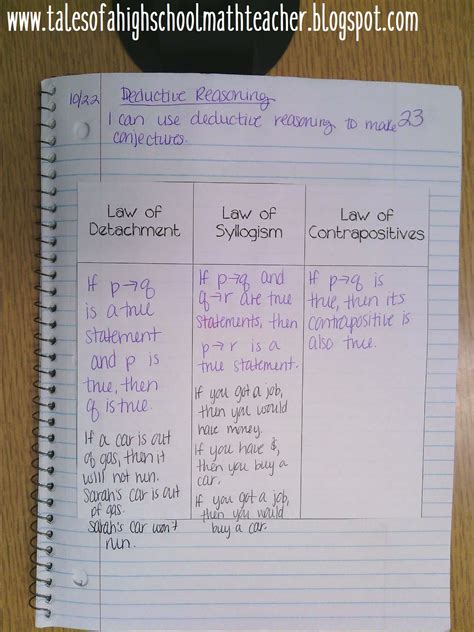 www.talesofahighschoolmathteacher.blogspot.com
10/22 Deductive Reasoning
I can use deductive reasoning to make 23
conjectures.
Law of
Detachment
If p→q
is a true
statement
and p is
true, then
q is true.
If a car is out
of gas, then it
will not run.
Sarah's car is out
of gas.
Sarah's car won't
run.
Law of
Syllogism
If p→q and
q→r are true
statements, then
p→r is a
true statement.
If you got a job,
then you would
have money.
If you have $,
then you buy a
car.
If you got a job,
then you would
buy a car.
Law of
Contrapositives
If p→q is
true, then its
contrapositive is
also true.